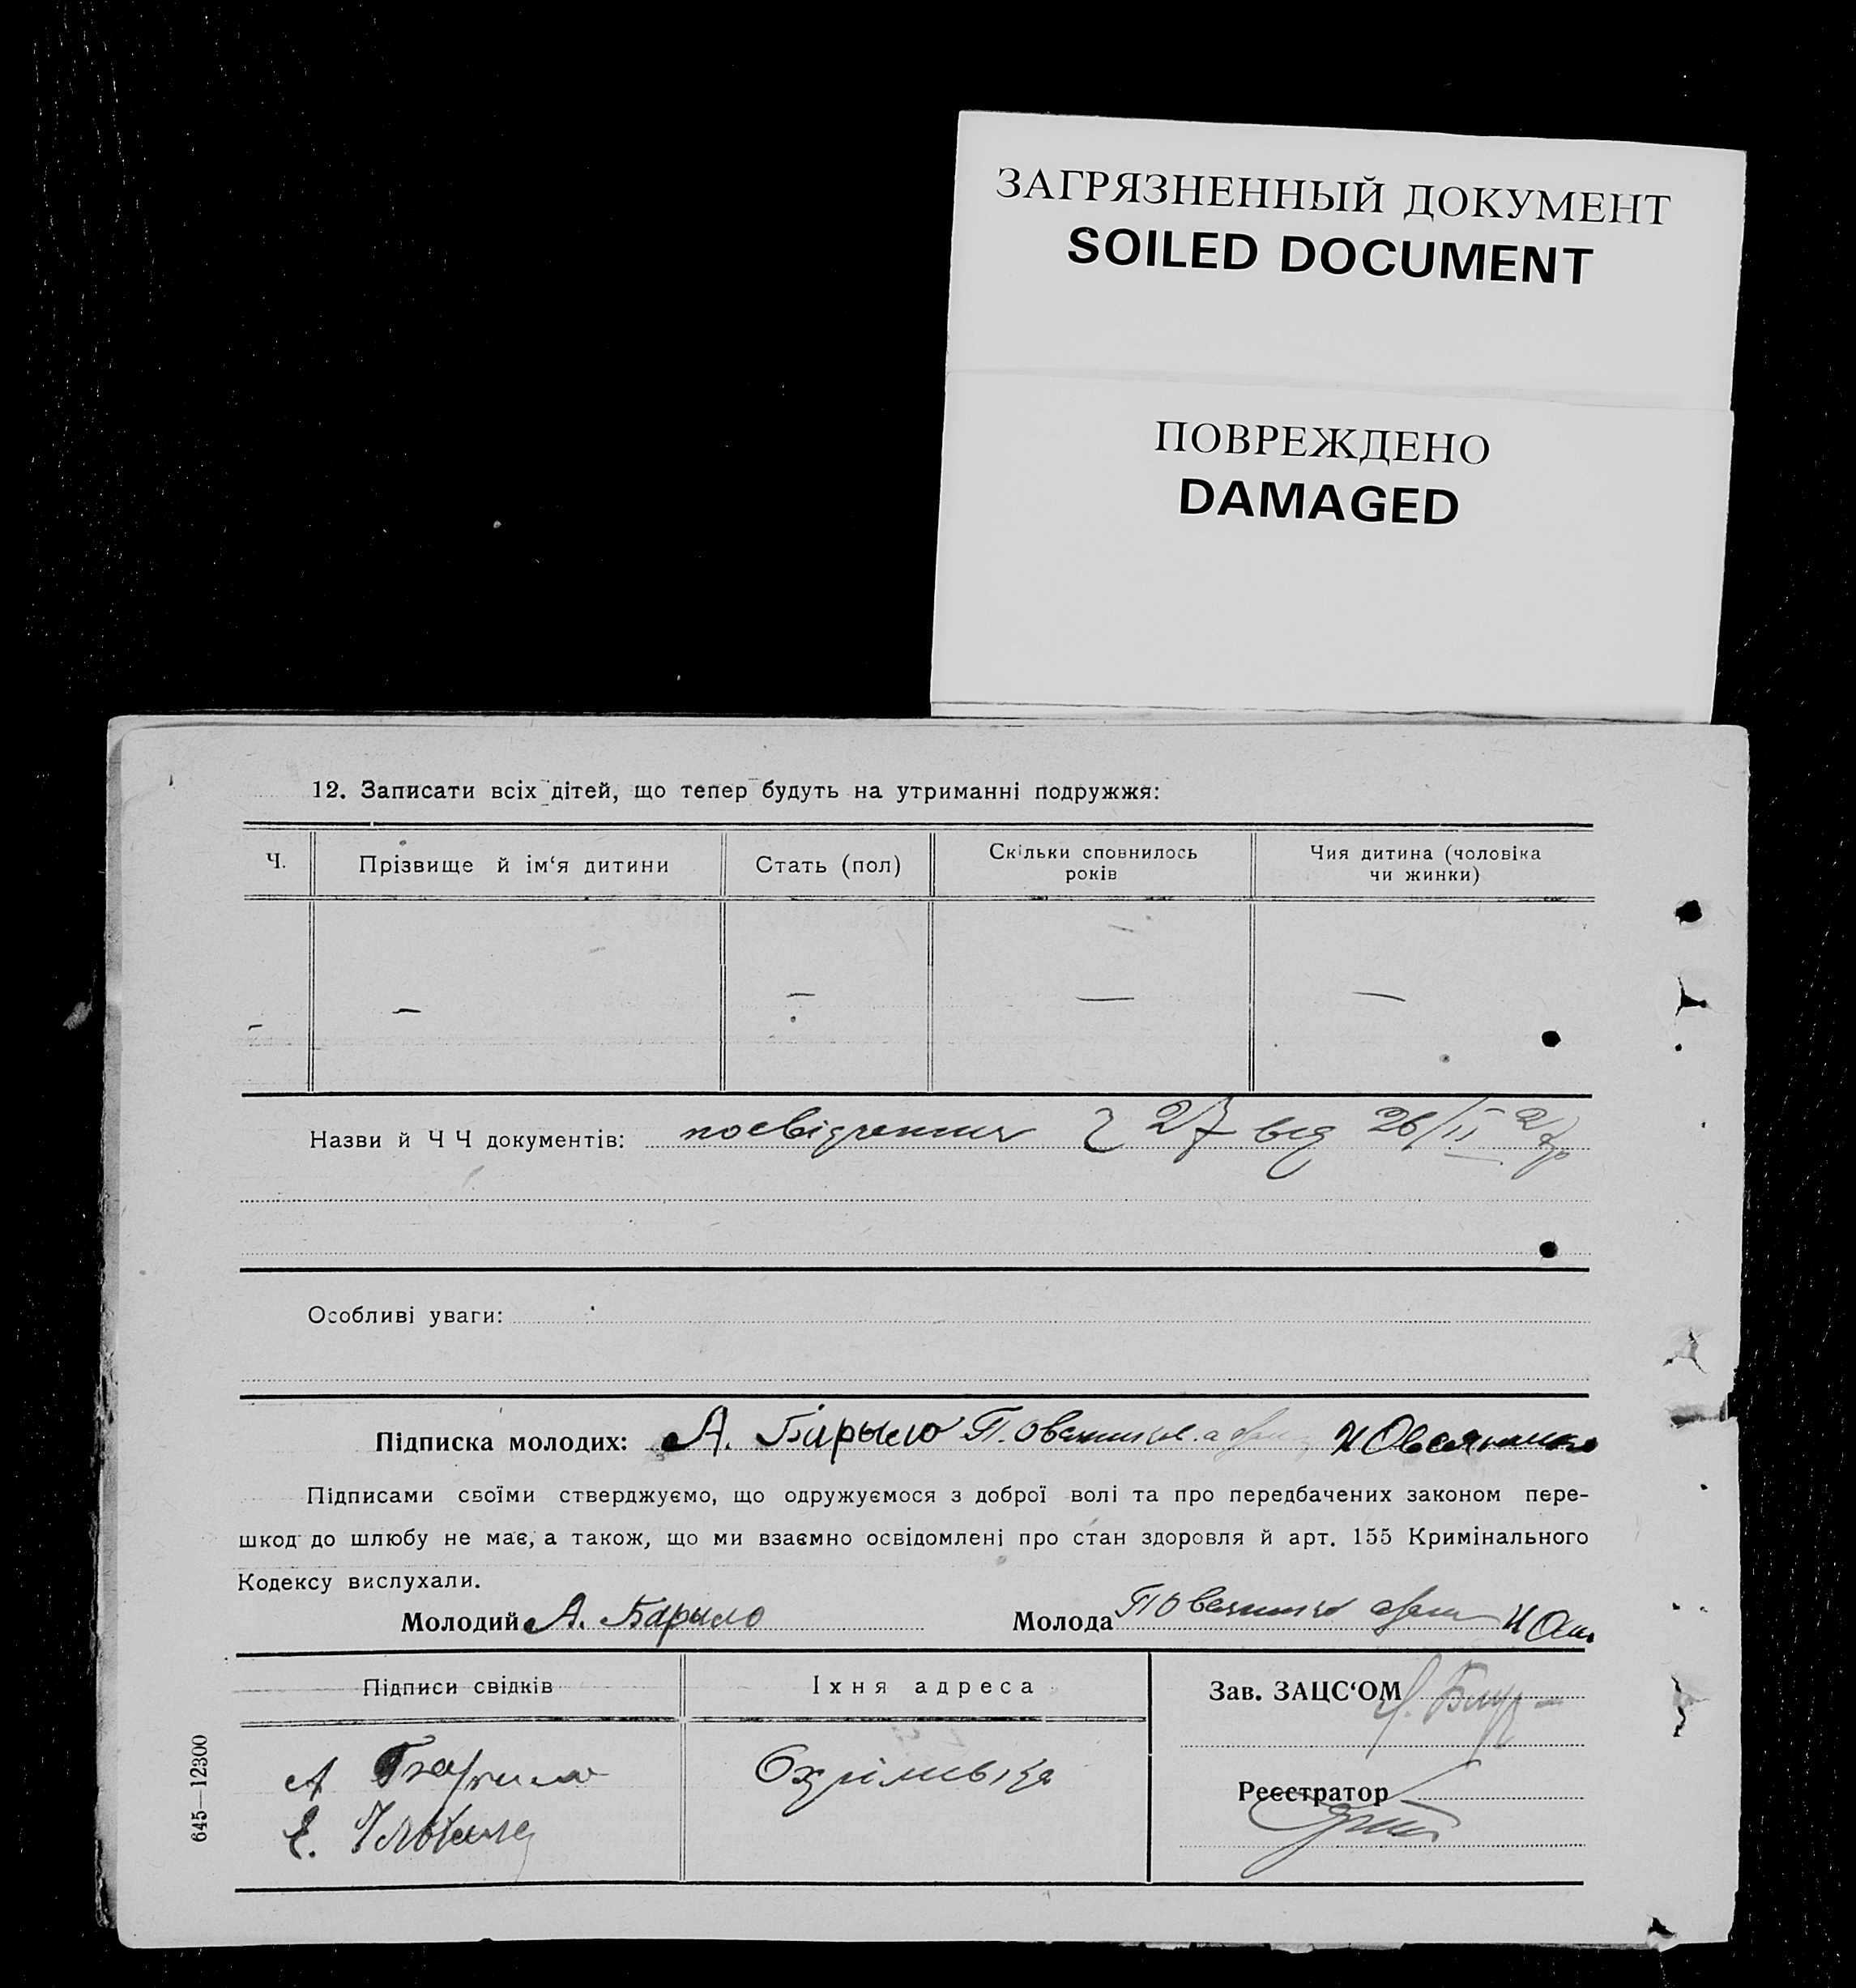 ЗАГРЯЗНЕННЫЙ ДОКУМЕНТ
SOILED DOCUMENT
ПОВРЕЖДЕНО
DAMAGED
12. Записати всіх дітей, що тепер будуть на утриманні подружжя:
Ч.
Прізвище й ім‘я дитини
Стать (пол)
Скільки сповнилось
років
Чия дитина (чоловіка
чи жинки)
— — — — —
Назви й Ч Ч документів: посвідчення 27 від 26/II 27р
Особливі уваги:
Підписка молодих: А. Барыло
Підписами своїми стверджуємо, що одружуємося з доброї волі та про передбачених законом пере-
шкод до шлюбу не має, а також, що ми взаємно освідомлені про стан здоровля й арт. 155 Кримінального
Кодексу вислухали.
Молодий А. Барыло Молода
Підписи свідків
Їхня адреса
Зав. ЗАЦС‘ОМ
А Барило
Охрімівка
Е.
Реєстратор
645—12300